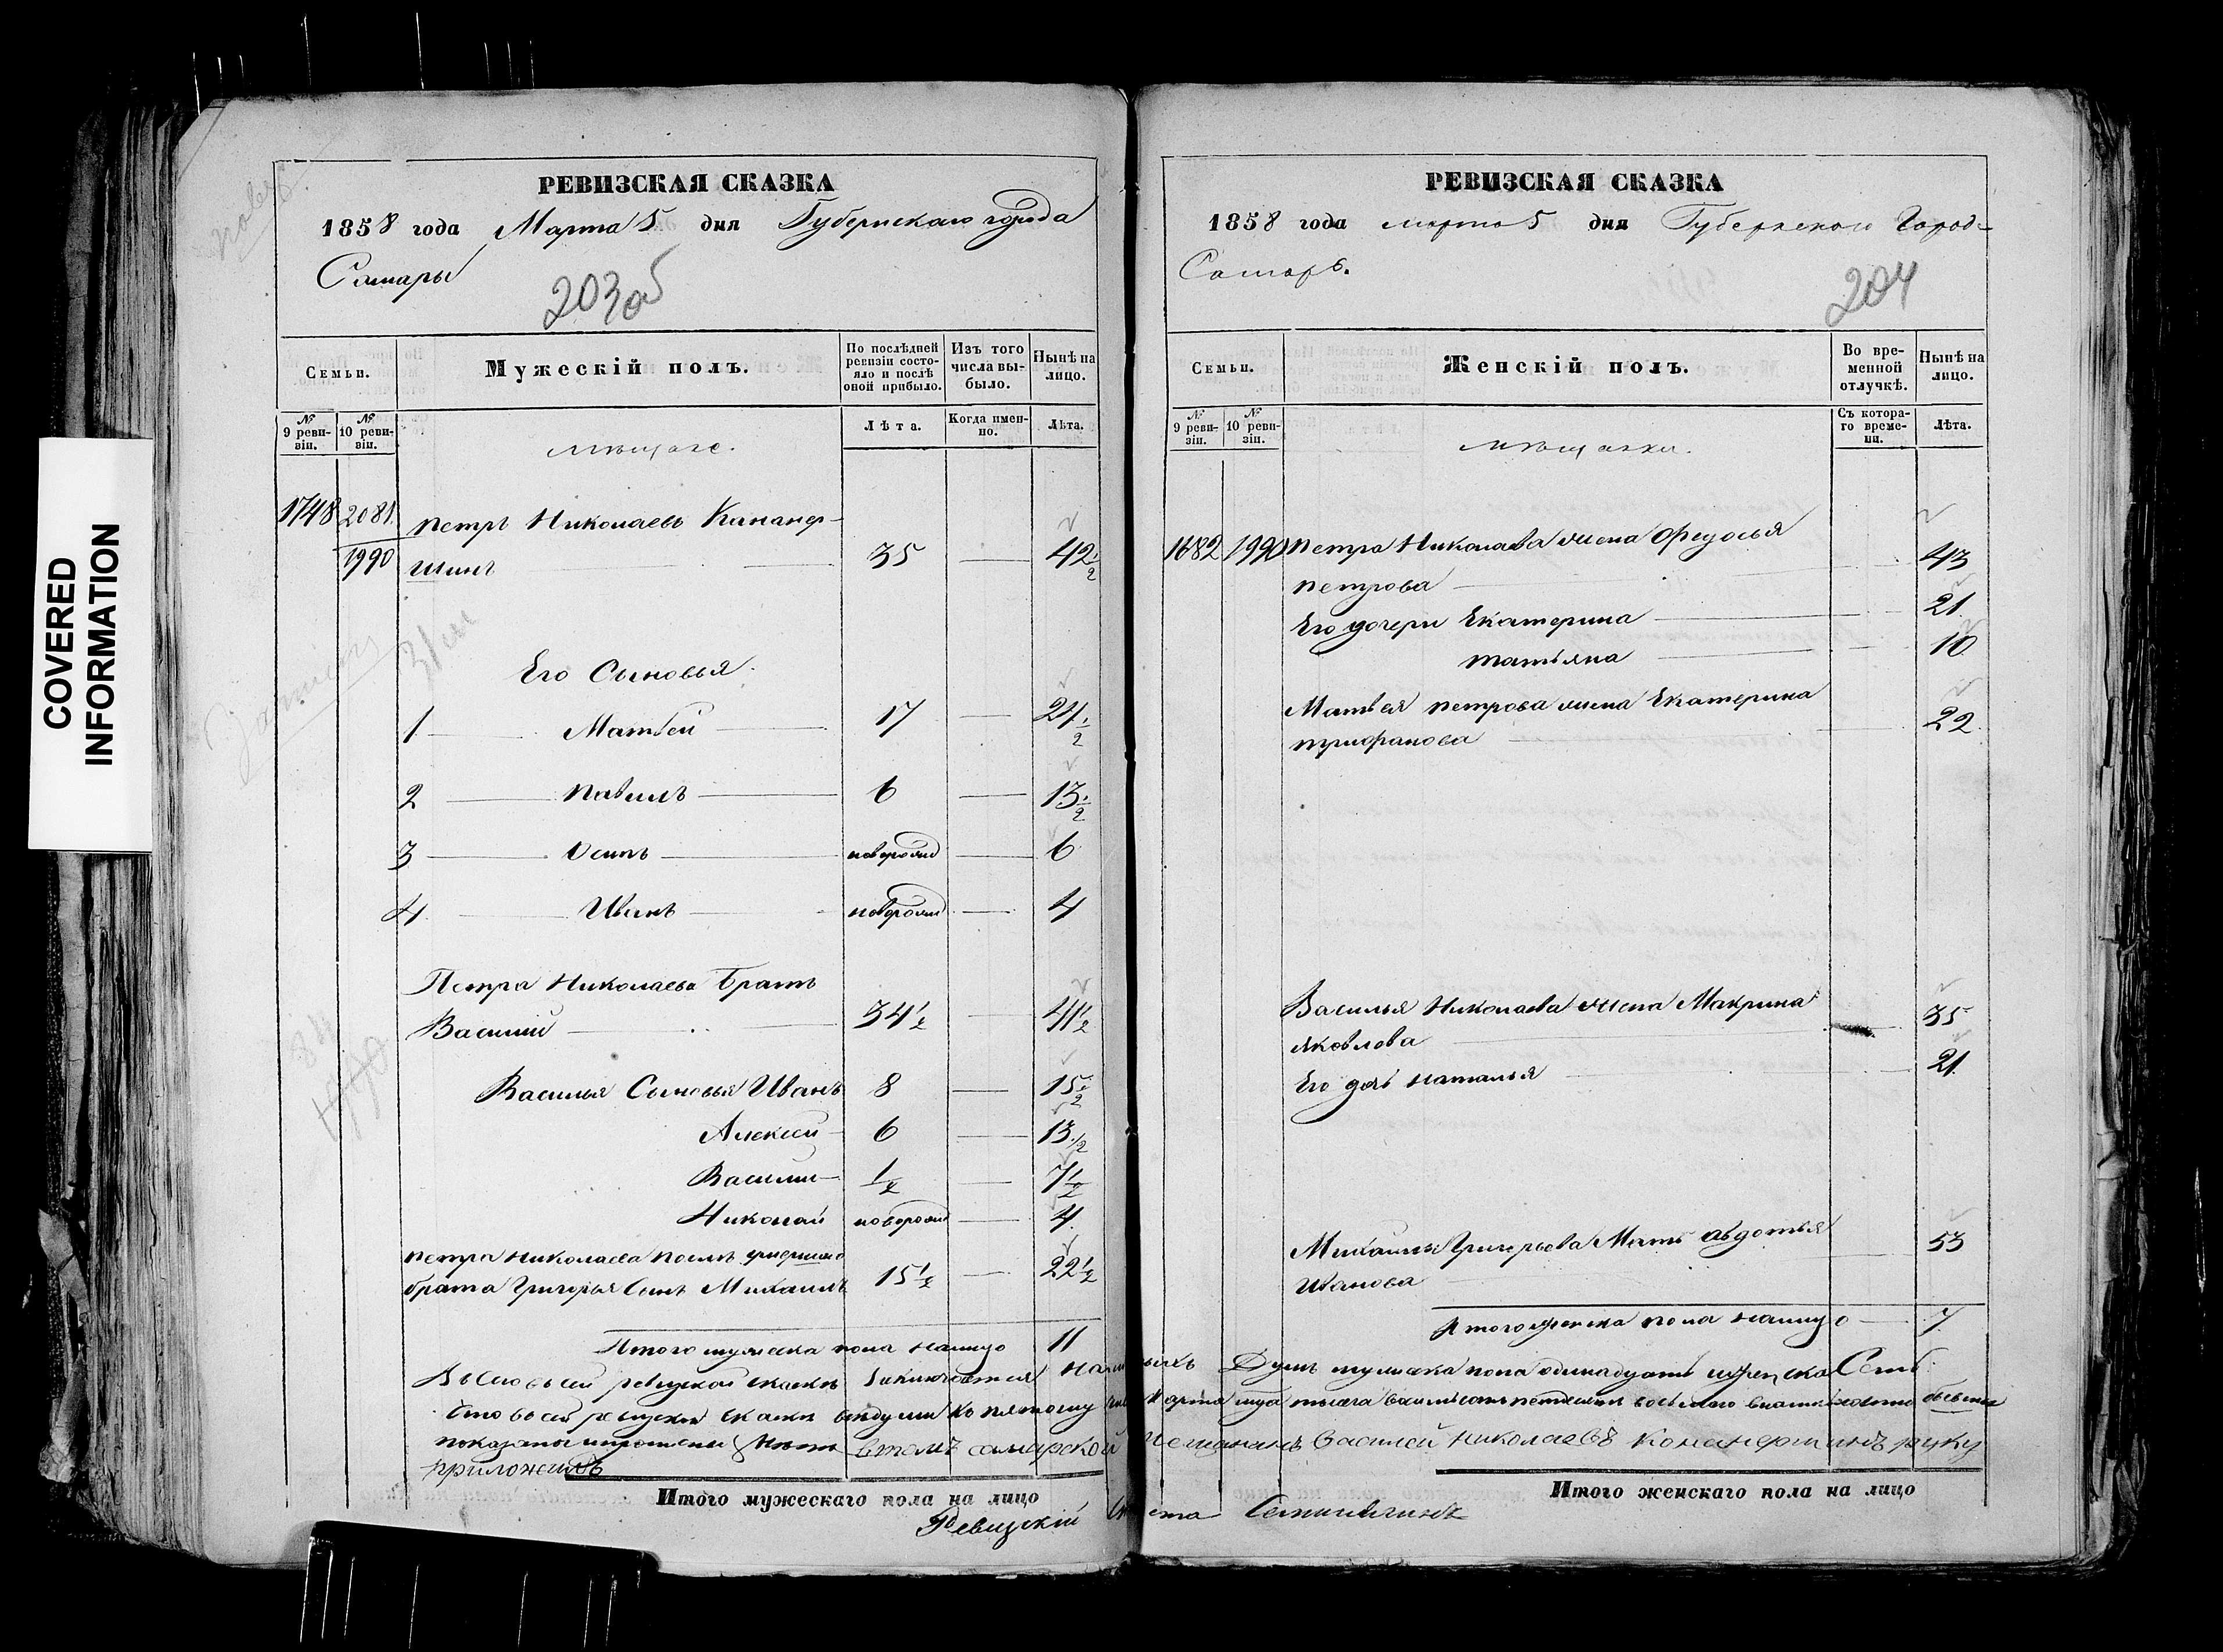 COVERED
INFORMATION
РЕВИЗСКАЯ СКАЗКА
1858 года Марта 5 дня Губернскаго города
Самары
203об
Семьи.
Мужескій полъ.
По послѣдней ревизіи состояло и послѣ оной прибыло.
Изъ того числа выбыло.
Нынѣ на лицо.
№ 9 ревизіи.
№ 10 ревизіи.
Лѣта.
Когда именно.
Лѣта.
мѣщане.
1748 2081 Петръ Николаевъ Кананер-
1990 шинъ 35 — 42 1/2
Его Сыновья.
1 Матвей 17 — 24 1/2
2 Павилъ 6 — 13 1/2
3 Осипъ новорожд — 6
4 Иванъ новорожд — 4
Петра Николаева братъ
Василий 34 1/2 — 41 1/2
Василья Сыновья Иванъ 8 — 15 1/2
Алексей 6 — 13 1/2
Василий 1/2 — 7 1/2
Николай новорожд — 4
Петра Николаева
брата Григорья Сынъ Михаилъ 15 1/2 — 22 1/2
Итого мужеска пола налицо 11
РЕВИЗСКАЯ СКАЗКА
1858 года марта 5 дня Губернскаго Город-
Самары.
204
Семьи.
Женскій полъ.
Во временной отлучкѣ.
Нынѣ на лицо.
№ 9 ревизіи.
№ 10 ревизіи.
Съ котораго времени.
Лѣта.
мѣщанки.
1682 1990 Петра Николаева жена Федосья
Петрова 43
Его дочери Екатерина 21
Татьяна 10
Матвея Петрова жена Екатерина
Трифанова 22
Василья Николаева жена Макрина
Яковлова 35
Его дочь Наталья 21
Михаила Григорьева Мать Авдотья
Иванова 53
Итого женска пола налицо 7
душъ мужеска пола одинадцать и женска Семь
въ томъ самарской мещанинъ Василей Николаевъ Кананершинъ руку
приложилъ
Итого мужескаго пола на лицо
Итого женскаго пола на лицо
Ревизский